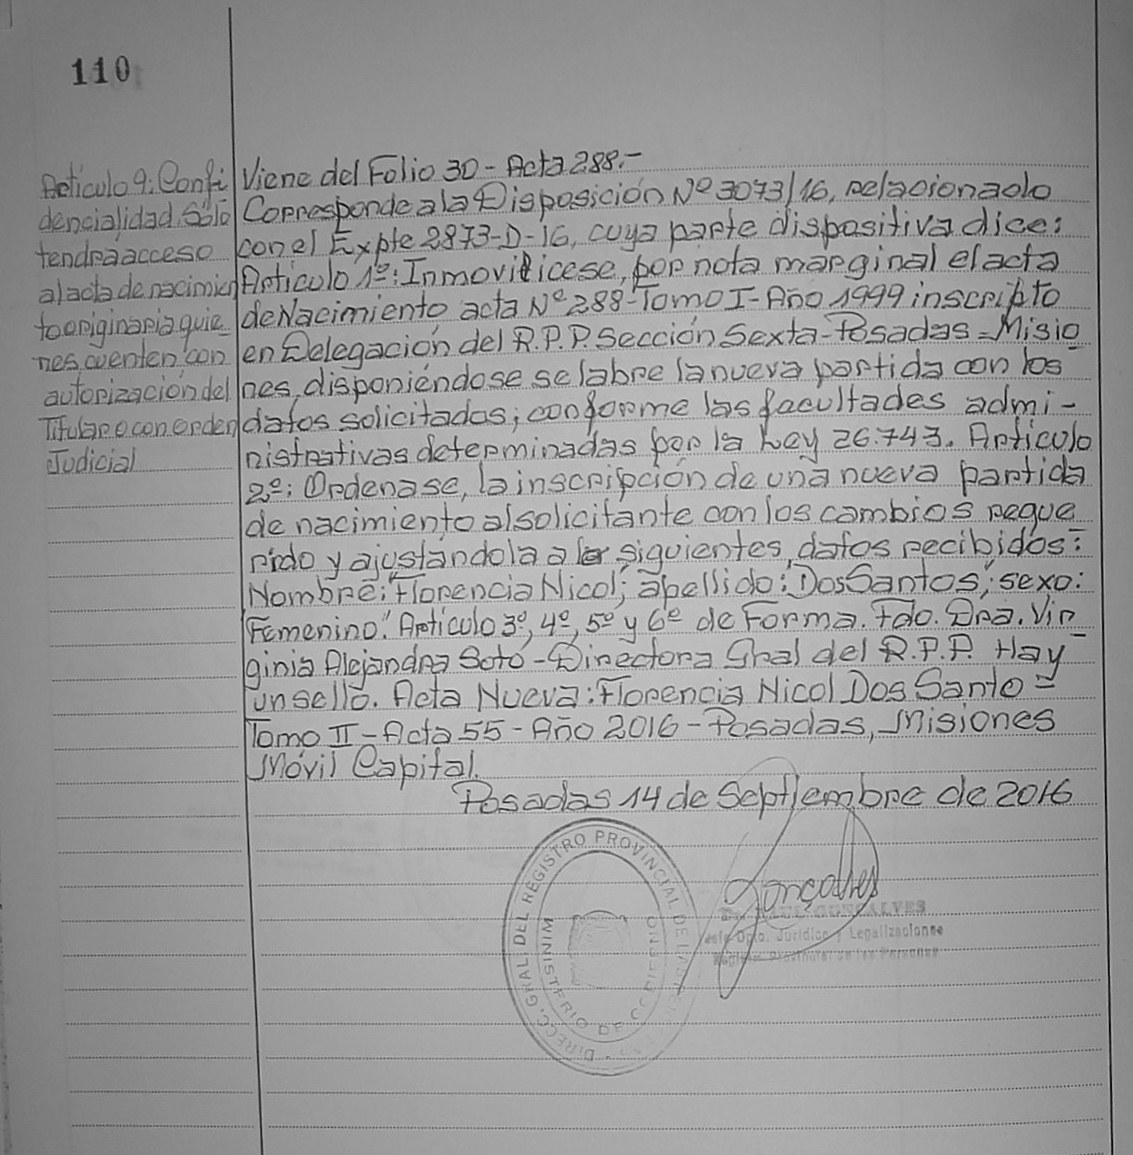 110
Articulo 9: Confi
dencialidad. Sólo
tendra acceso
al acta de nacimien
to originaria quie
nes cuenten con
autorización del
Titular o con orden
Judicial
Viene del Folio 30 - Acta 288.-
Corresponde a la Disposición Nº 3073/16, relacionado
con el Expte 2873-D-16, cuya parte dispositiva dice:
Articulo 1º: Inmovilicese, por nota marginal el acta
de Nacimiento acta Nº 288-Tomo I-Año 1999 inscripto
en Delegación del R.P.P. Sección Sexta-Posadas-Misio
nes, disponiéndose se labre la nueva partida con los
datos solicitados; conforme las facultades admi-
nistrativas determinadas por la Ley 26.743. Articulo
2º: Ordenase, la inscripción de una nueva partida
de nacimiento al solicitante con los cambios reque
rido y ajustándola a los siguientes datos recibidos:
Nombre: "Florencia Nicol; apellido: Dos Santos; sexo:
Femenino." Articulo 3º, 4º, 5º y 6º de Forma. Fdo. Dra. Vir
ginia Alejandra Soto - Directora Gral del R.P.P. Hay
un sello. Acta Nueva: Florencia Nicol Dos Santo -
Tomo II - Acta 55 - Año 2016 - Posadas, Misiones
Móvil Capital.
Posadas 14 de Septiembre de 2016
DIRECC. GRAL. DEL REGISTRO PROVINCIAL DE LAS
MINISTERIO DE GOBIERNO
Gonçalves
GONCALVES
Jefe Dpto. Jurídico y Legalizaciones
Registro Provincial de las Personas